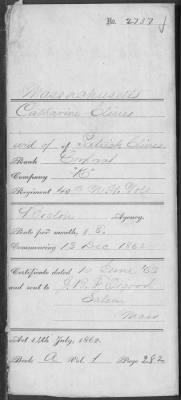 No. 2737
Massachusetts
Catharine Clines
wid of Patrick Clines
Rank Corporal
Company "K"
Regiment 40th N.Y. Vols
Boston Agency.
Rate per month, $8.
Commencing 13 Dec 1862
Certificate dated 10 June '63
and sent to
Salem
Mass
Act 14th July, 1862.
Book A Vol. 1 Page 282